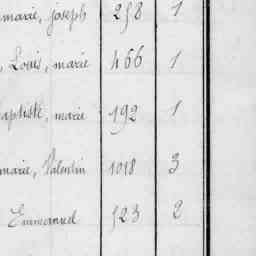 marie, joseph 258 1
, Louis, marie 466 1
aptiste, marie 192 1
marie, Valentin 1018 3
Emmanuel 523 2